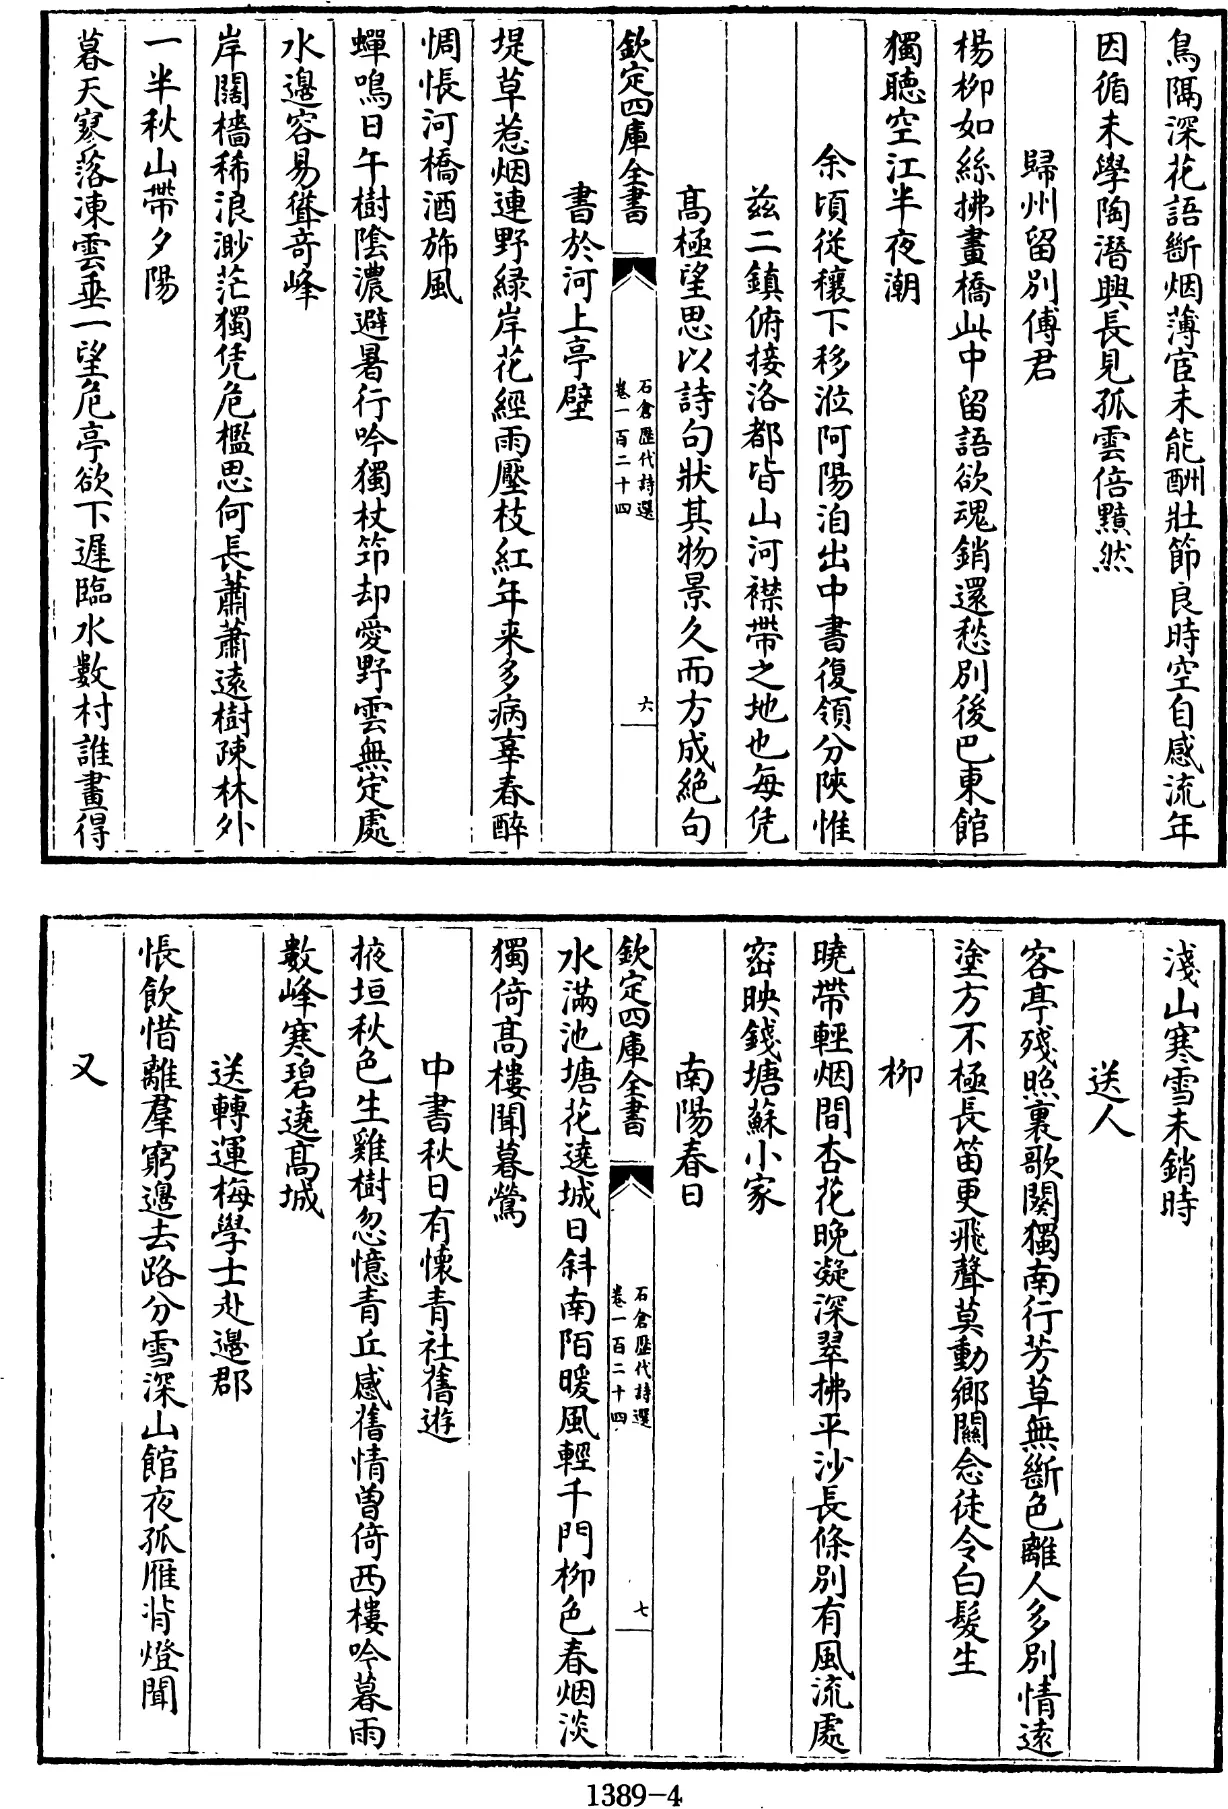 鳥隔深花語斷烟薄宦未能酬壯節良時空自感流年
因循未學陶潛興長見孤雲倍黯然
歸州留別傅君
楊柳如絲拂畫橋此中留語欲魂銷還愁別後巴東館
獨聽空江半夜潮
余頃從穰下移涖河陽洎出中書復領分陜惟
茲二鎮俯接洛都皆山河襟帶之地也每凭
高極望思以詩句狀其物景久而方成絕句
書於河上亭壁
欽定四庫全書
石倉歷代詩選
卷一百二十四
六
堤草惹烟連野綠岸花經雨壓枝紅年来多病辜春醉
惆悵河橋酒斾風
蟬鳴日午樹陰濃避暑行吟獨杖笻却愛野雲無定處
水邊容易聳奇峰
岸闊檣稀浪渺茫獨凭危檻思何長蕭蕭遠樹踈林外
一半秋山帶夕陽
暮天寒落凍雲垂一望危亭欲下遲臨水數村誰畫得
淺山寒雪未銷時
送人
客亭殘照裏歌闋獨南行芳草無斷色離人多別情遠
塗方不極長笛更飛聲莫動鄉關念徒令白髮生
柳
曉帶輕烟間杏花晚凝深翠拂平沙長條別有風流處
密映錢塘蘇小家
南陽春日
欽定四庫全書
石倉歷代詩選
卷一百二十四
七
水滿池塘花遶城日斜南陌暖風輕千門柳色春烟淡
獨倚高樓聞暮鶯
中書秋日有懷青社舊遊
掖垣秋色生雞樹忽憶青丘感舊情曽倚西樓吟暮雨
數峰寒碧遶高城
送轉運梅學士赴邊郡
悵飲惜離羣窮邊去路分雪深山館夜孤雁背燈聞
又
1389-4